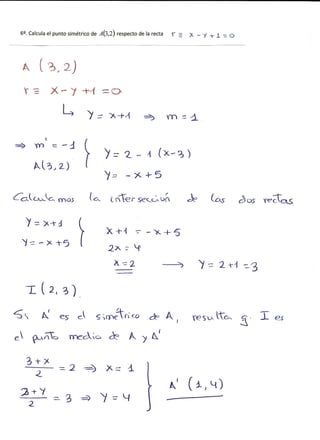 6º. Calcula el punto simétrico de A(3,2) respecto de la recta r ≡ x - y + 1 = 0
A (3, 2)
r ≡ x - y + 1 = 0
↳ y = x+1 ⇒ m = 1
⇒ m' = -1
A(3, 2)
y = 2 - 1 (x-3)
y = -x + 5
Calculamos la intersección de las dos rectas
y = x+1
y = -x +5
x+1 = -x+5
2x = 4
x = 2 → y = 2+1 = 3
I (2, 3).
Si A' es el simétrico de A, resulta q. I es
el punto medio de A y A'
3+x/2 = 2 ⇒ x = 1
2+y/2 = 3 ⇒ y = 4
A' (1, 4)